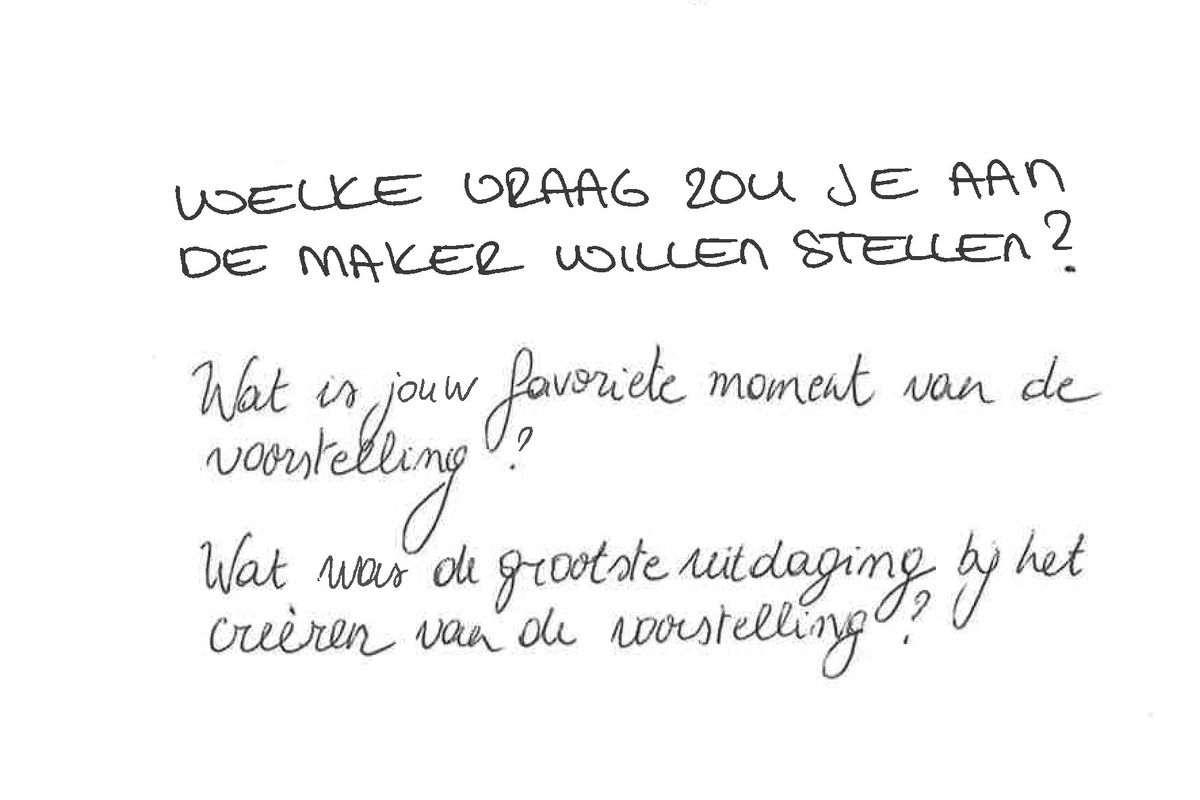 WELKE VRAAG ZOU JE AAN
DE MAKER WILLEN STELLEN?
Wat is jouw favoriete moment van de
voorstelling?
Wat was de grootste uitdaging bij het
creëren van de voorstelling?